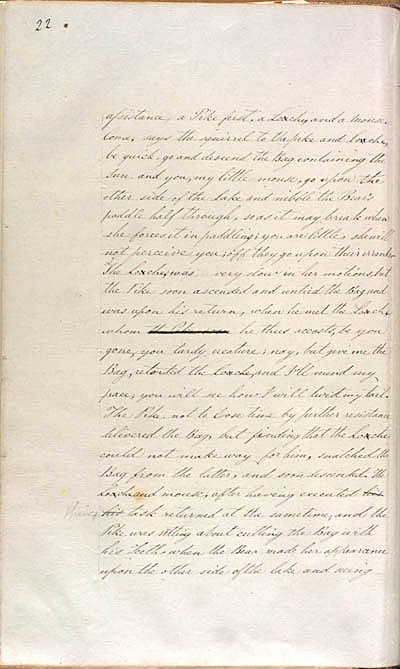 22
assistance, a Pike first, a Loache, and a mouse.
Come, says the squirrel to the pike and Loache,
be quick. go and descend the Bag containing the
Sun. and you, my little mouse, go upon the
other side of the lake and nibble the Bear's
paddle half through, so as it may break when
she forces it in paddling; you are little, she will
not perceive you; off they go upon their errands
The Loache, was very slow in her motions, but
the Pike soon ascended and untied the Bag and
was upon his return, when he met the Loache
whom he thus accosts, be you
gone, you tardy creature; nay, but give me, the
Bag, retorted the loache, and I'll mend my
pace, you will see how I will twist my tail.
The Pike. not to lose time by further resistance
delivered the Bag, but finding that the Loache
could not make way for him, snatched the
Bag from the latter, and soon descended. The
Loache and mouse, after having executed his
their his task returned at the same time, and the
Pike was sitting about cutting the Bag with
his Teeth, when the Bear made her appearance
upon the other side of the lake and seeing